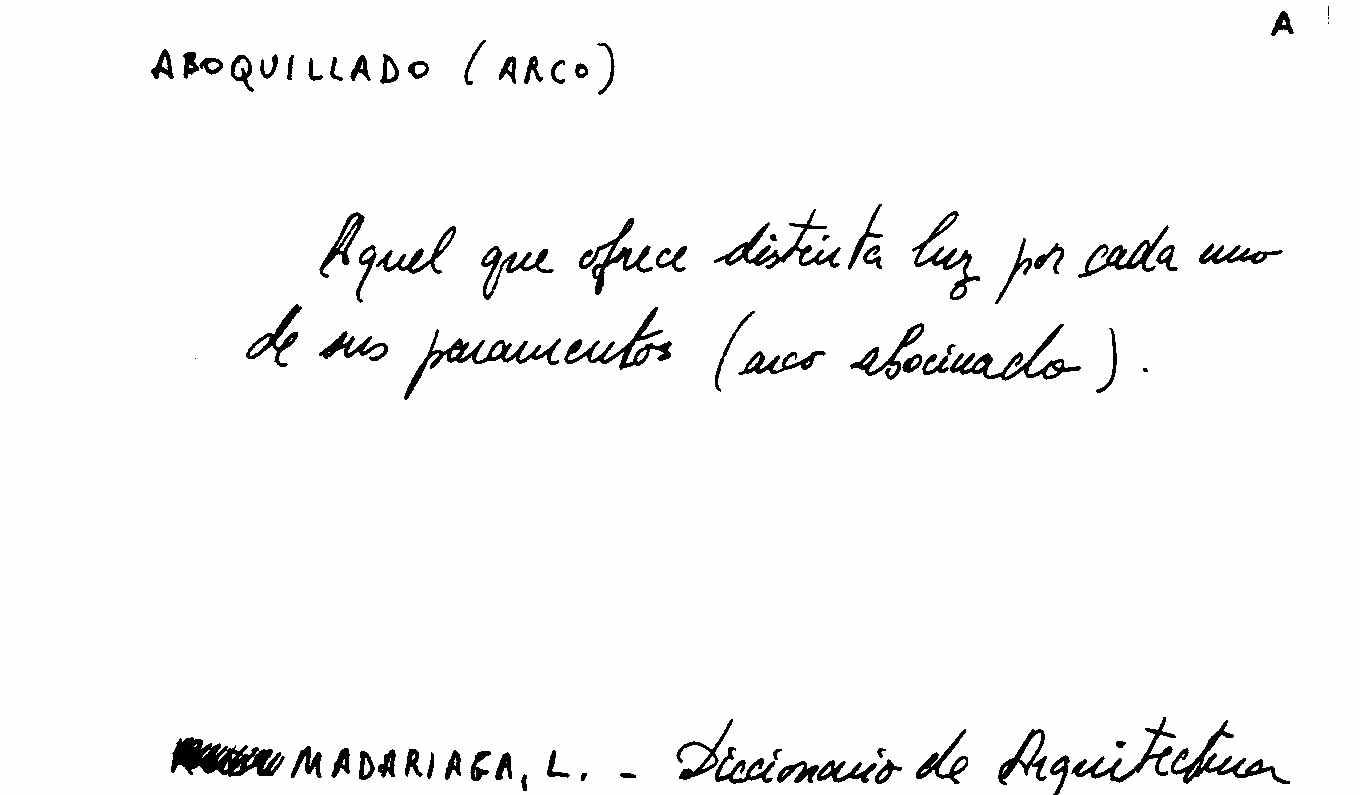 A
ABOQUILLADO (ARCO)
Aquel que ofrece distinta luz por cada uno
de sus paramentos (arco abocinado).
MADARIAGA, L. - Diccionario de Arquitectura